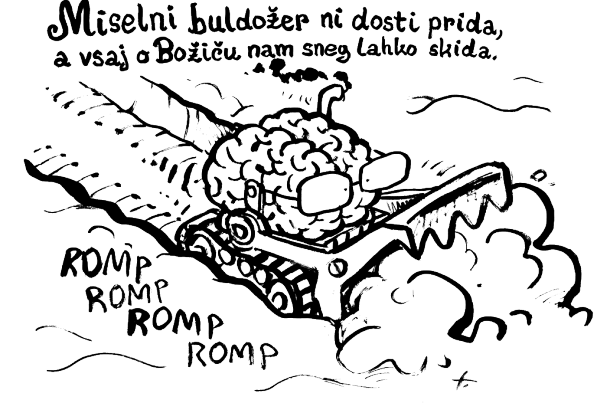 Miselni buldožer ni dosti prida,
a vsaj o Božiču nam sneg lahko skida.
ROMP
ROMP
ROMP
ROMP